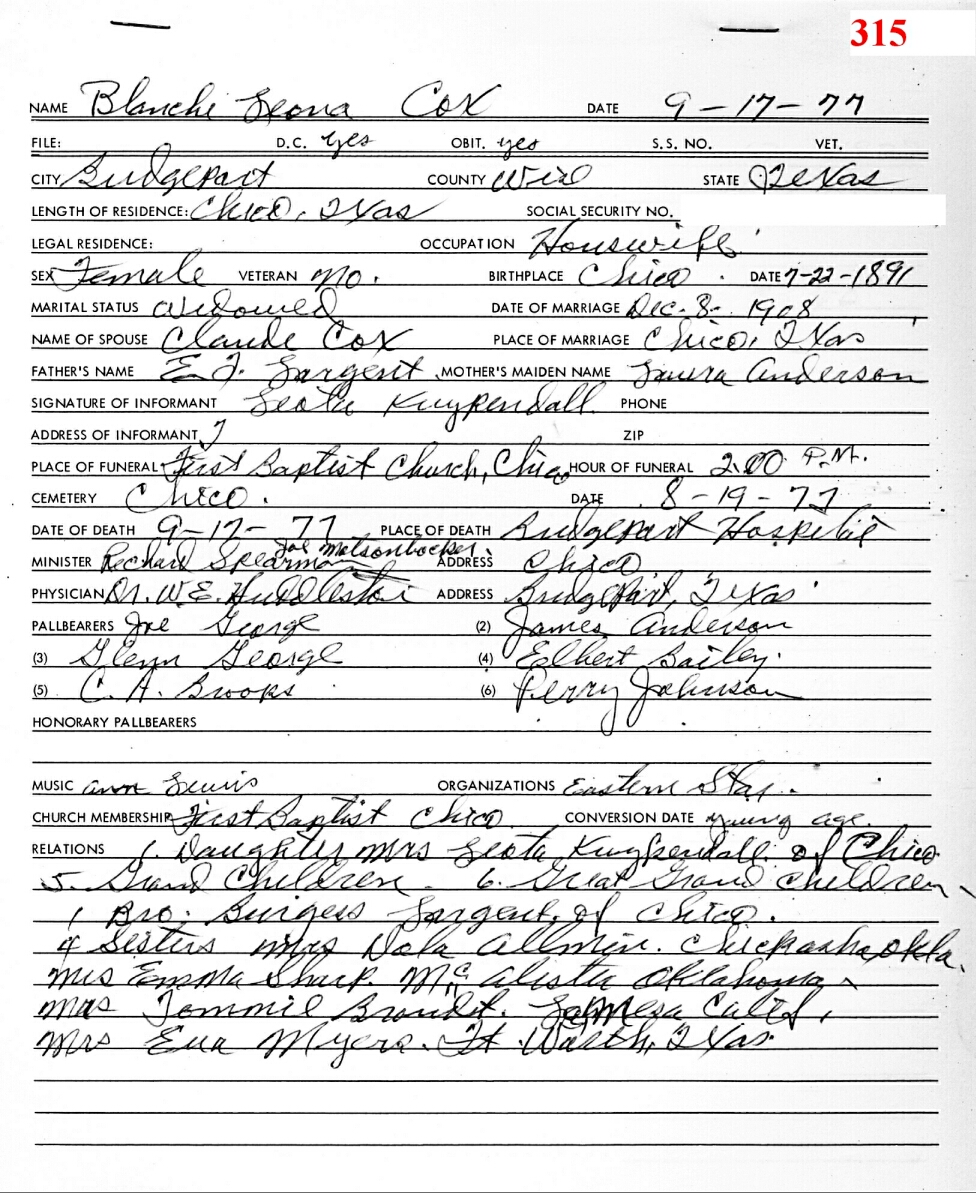 315
NAME Blanche Leona Cox DATE 9-17-77
FILE: D.C. yes OBIT. yes S.S. NO. VET.
CITY Bridgeport COUNTY Wise STATE Texas
LENGTH OF RESIDENCE: Chico, Texas SOCIAL SECURITY NO.
LEGAL RESIDENCE: OCCUPATION Housewife
SEX Female VETERAN No. BIRTHPLACE Chico. DATE 7-22-1891
MARITAL STATUS Widowed DATE OF MARRIAGE Dec. 8- 1908
NAME OF SPOUSE Claude Cox PLACE OF MARRIAGE Chico, Texas
FATHER'S NAME E. F. Sargent MOTHER'S MAIDEN NAME Laura Anderson
SIGNATURE OF INFORMANT Leota Kuykendall PHONE
ADDRESS OF INFORMANT ZIP
PLACE OF FUNERAL First Baptist Church, Chico HOUR OF FUNERAL 2:00 P.M.
CEMETERY Chico. DATE 8-19-77
DATE OF DEATH 9-17-77 PLACE OF DEATH Bridgeport Hospital
MINISTER Richard Spearman Joe ADDRESS Chico
PHYSICIAN Dr. W.E. Huddleston ADDRESS Bridgeport, Texas
PALLBEARERS Joe George (2) James Anderson
(3) Glenn George (4) Elbert Bailey.
(5) C. A. Brooks (6) Perry Johnson
HONORARY PALLBEARERS
MUSIC Ann Lewis ORGANIZATIONS Eastern Star.
CHURCH MEMBERSHIP First Baptist Chico CONVERSION DATE young age.
RELATIONS 1. Daughter Mrs Leota Kuykendall of Chico
5. Grand Children. 6. Great Grand Children
1 Bro: Burgess Sargent, of Chico.
4 Sisters Mrs Dola Allmin. Chickasha, Okla.
Mrs Emma Sharp. McAlister Oklahoma
Mrs Tommie Brandt. LaMesa Calif,
Mrs Eua Myers. Ft. Worth, Texas.